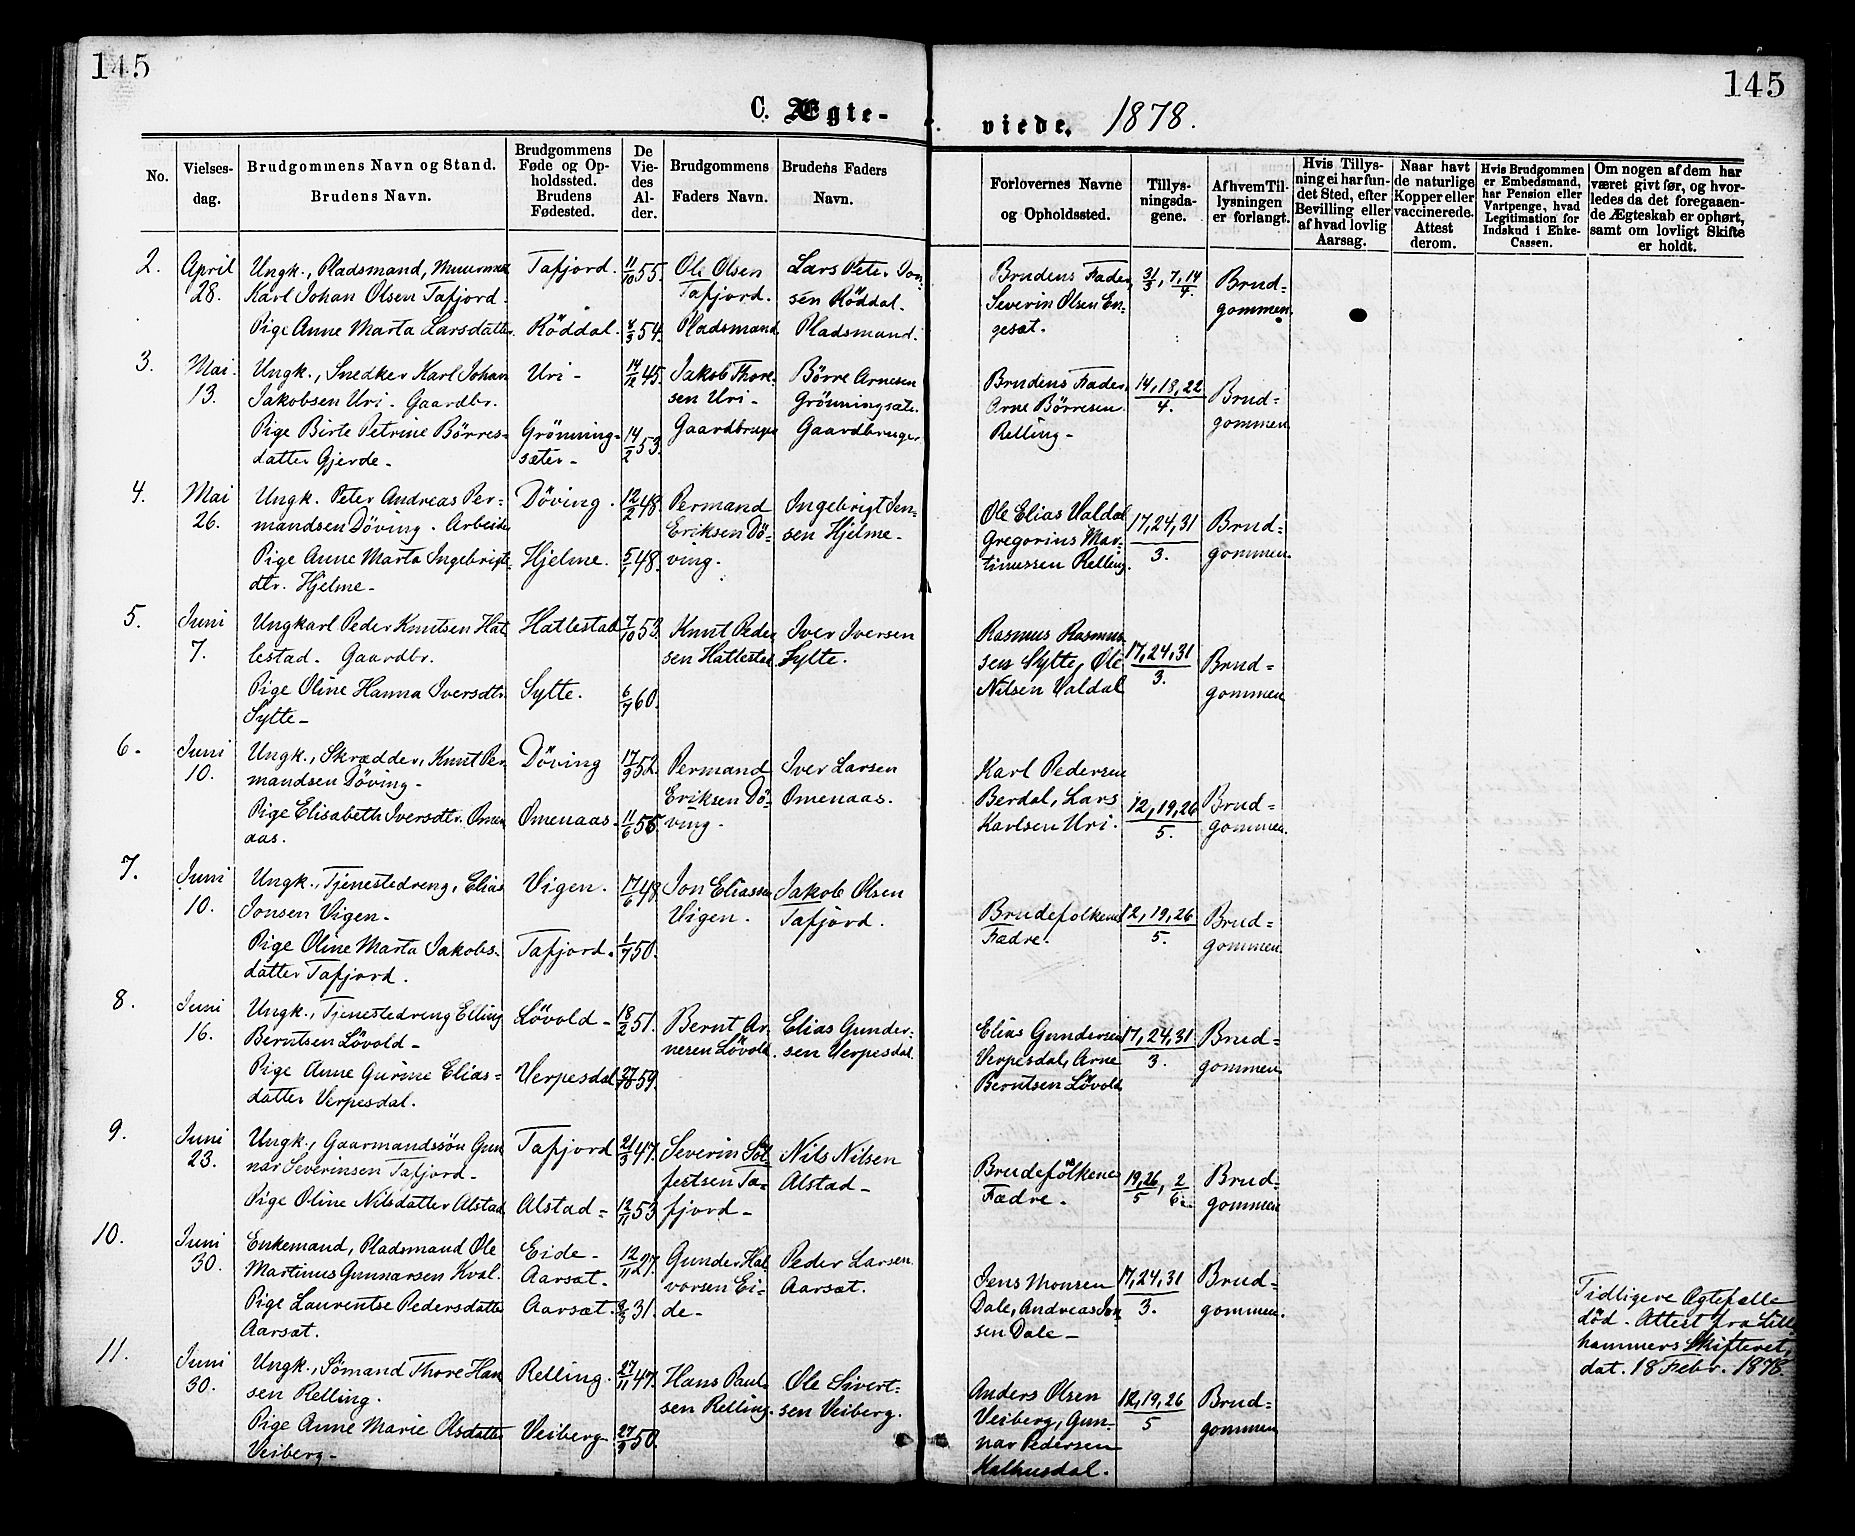 145
145
C. Ægte-
viede. 1878.
No.
Vielses-
dag.
Brudgommens Navn og Stand.
Brudens Navn.
Brudgommens
Føde og Op-
holdssted.
Brudens
Fødested.
De
Vie-
des
Al-
der.
Brudgommens
Faders Navn.
Brudens Faders
Navn.
Forlovernes Navne
og Opholdssted.
Tillys-
ningsda-
gene.
Af hvem Til-
lysningen
er forlangt.
Hvis Tillys-
ning ei har fun-
det Sted, efter
Bevilling eller
af hvad lovlig
Aarsag.
Naar havt
de naturlige
Kopper eller
vaccinerede.
Attest
derom.
Hvis Brudgommen
er Embedsmand,
har Pension eller
Vartpenge, hvad
Legitimation for
Indskud i Enke-
Cassen.
Om nogen af dem har
været givt før, og hvor-
ledes da det foregaaen-
de Ægteskab er ophørt,
samt om lovligt Skifte
er holdt.
2.
April
28.
Ungk., Pladsmand, Muurmest.
Karl Johan Olsen Tafjord.
Pige Anne Marta Larsdatter
Tafjord.
Röddal.
11/10 55.
8/3 54.
Ole Olsen
Tafjord.
Pladsmand
Lars Peter Jon-
sen Röddal.
Pladsmand.
Brudens Fader
Severin Olsen En-
geset.
31/3, 7, 14/4.
Brud-
gommen.
3.
Mai
13.
Ungk., Snedker Karl Johan
Jakobsen Uri. Gaardbr.
Pige Birte Petrine Börres-
datter Gjerde-
Uri-
Grönning-
sæter-
14/12 45.
14/2 53.
Jakob Thore-
sen Uri-
Gaardbruger
Börre Arnesen
Grönningsæte.
Gaardbruger.
Brudens Fader,
Arne Börresen
Relling-
14, 18, 22
4.
Brud-
gommen
4.
Mai
26.
Ungk. Peter Andreas Per-
mandsen Döving. Arbeider
Pige Anne Marta Ingebrigts-
dtr. Hjelme-
Döving.
Hjelme.
12/2 48.
5/1 48.
Permand
Eriksen Dö-
ving.
Ingebrigt Jen-
sen Hjelme-
Ole Elias Valdal
Gregorius Mar-
tinussen Relling.
17, 24, 31
3.
Brud-
gommen.
5.
Juni
7.
Ungkarl Peder Knutsen Hat-
lestad. Gaardbr.
Pige Oline Hanna Iversdtr.
Sylte-
Hatlestad
Sylte.
7/10 53.
6/7 60.
Knut Peder-
sen Hatlestad
Iver Iversen
Sylte.
Rasmus Rasmus-
sen Sylte, Ole
Nilsen Valdal
17, 24, 31
3.
Brud-
gommen
6.
Juni
10.
Ungk., Skrædder, Knut Per-
mandsen Döving-
Pige Elisabeth Iversdtr. Omen-
aas.
Döving
Omenaas.
17/9 52.
11/6 55
Permand
Eriksen Dö-
ving-
Iver Larsen
Omenaas.
Karl Pedersen
Berdal, Lars
Karlsen Uri.
12, 19, 26
5.
Brud-
gommen.
7.
Juni
10.
Ungk., Tjenestedreng, Elias
Jonsen Vigen-
Pige Oline Marta Jakobs-
datter Tafjord.
Vigen.
Tafjord.
17/6 48.
1/7 50.
Jon Eliassen
Vigen.
Jakob Olsen
Tafjord.
Brudefolkenes
Fædre.
12, 19, 26
5.
Brud-
gommen
8.
Juni
16.
Ungk., Tjenestedreng Elling
Berntsen Lövold-
Pige Anne Gurine Elias-
datter Verpesdal.
Lövold-
Verpesdal
18/2 51.
27/10 59.
Bernt Ar-
nesen Lövold.
Elias Gunder-
sen Verpesdal.
Elias Gundersen
Verpesdal, Arne
Berntsen Lövold
17, 24, 31.
3.
Brud-
gommen.
9.
Juni
23.
Ungk., Gaarmandssön Gun-
nar Severinsen Tafjord-
Pige Oline Nilsdatter Alstad
Tafjord
Alstad-
21/3 47.
12/11 53
Severin Sol-
festsen Ta-
fjord-
Nils Nilsen
Alstad-
Brudefolkenes
Fædre-
19, 26/5, 2/6.
Brud-
gommen
10.
Juni
30.
Enkemand, Pladsmand Ole
Martinus Gunnarsen Kval.
Pige Laurentse Pedersdatter
Aarsæt.
Eide-
Aarsæt-
Aarsæt.
12/11 27.
2/3 31.
Gunder Hal-
vorsen Ei-
de-
Peder Larsen
Aarsæt.
Jens Monsen
Dale, Andreas Jon-
sen Dale-
17, 24, 31
3.
Brud-
gommen.
Tidligere Ægtefælle
död. Attest fra Lille-
hammers Skifteret,
dat. 18 Febr. 1878.
11.
Juni
30.
Ungk., Sömand Thore Han-
sen Relling.
Pige Anne Marie Olsdatter
Veiberg-
Relling.
Veiberg
27/11 47.
27/9 50.
Hans Paul-
sen Relling.
Ole Sivert-
sen Veiberg.
Anders Olsen
Veiberg, Gun-
nar Pedersen
Kalhusdal.
12, 19, 26
5
Brud-
gommen